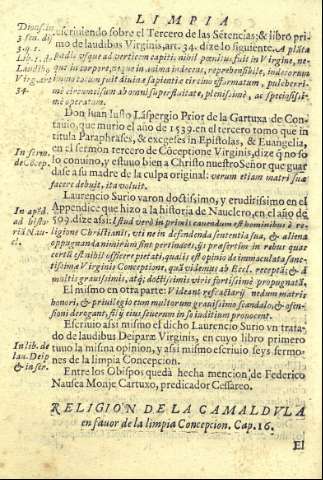 LIMPIA
escriuiendo sobre el Tercero de las Sētencias; & libro pri-
mo de laudibus Virginis, art. 34. dize lo siguiente. A plāta
pedis vsque ad verticem capitis nihil pœnitus fuit in Virgine, ne-
que in corpore, neque in anima indecens, reprehensibile, indecorum
immo totum fuit diuina sapientia circino efformatum, pulcherri-
mè circumsisum ab omni superfluitate, plenissimè, ac speciosissi-
mè operatum.
Don Iuan Iusto Laspergio Prior de la Cartuxa de Con-
tauio, que murio el año de 1539. en el tercero tomo que in-
titula Paraphrases, & exegeses in Epistolas, & Euangelia,
en el sermon tercero de Cōceptione Virginis, dize q̃ no so
lo conuino, y estuuo bien a Christo nuestro Señor que guar
dase a su madre de la culpa original: verum etiam matri suæ
facere debuit, ita voluit.
Laurencio Surio varon doctissimo, y eruditissimo en el
Appendice que hizo a la historia de Nauclero, en el año de
599. dize assi: Istud verò in primis cauendum est hominibus à re-
ligione Christianis, vti ne in defendenda sententia sua, & aliena
oppugnanda nimirùm sint pertinaces, ijs præsertim in rebus quæ
certū est nihil officere pietati, qualis est opinio de immaculata sanc-
tissimæ Virginis Conceptione, quā videmus ab Eccl. recepta, & à
multis grauissimis, atq; doctissimis viris fortissimè propugnatā,
El mismo en otra parte: Videant refractarij ne dum matris
honori, & priuilegio eum multorum grauissimo scandalo, & offen-
sioni derogant, filij eius seuerum in se iuditium prouocent.
Escriuio assi mismo el dicho Laurencio Surio vn trata-
do de laudibus Deiparæ Virginis, en cuyo libro primero
tuuo la misma opinion, y assi mismo escriuio seys sermo-
nes de la limpia Concepcion.
Entre los Obispos queda hecha mencion de Federico
Nausea Monje Cartuxo, predicador Cessareo.
RELIGION DE LA CAMALDVLA
en fauor de la limpia Concepcion. Cap. 16.
El
Dionis. in
3. sen. dis
3. q. 1.
Lib. 1. de
Laudib9
Virg. art
34.
In serm.
de Cōcep.
In apēd.
ad histo-
riā Nau-
cl.
In lib. de
lau. Deip
& in ser.